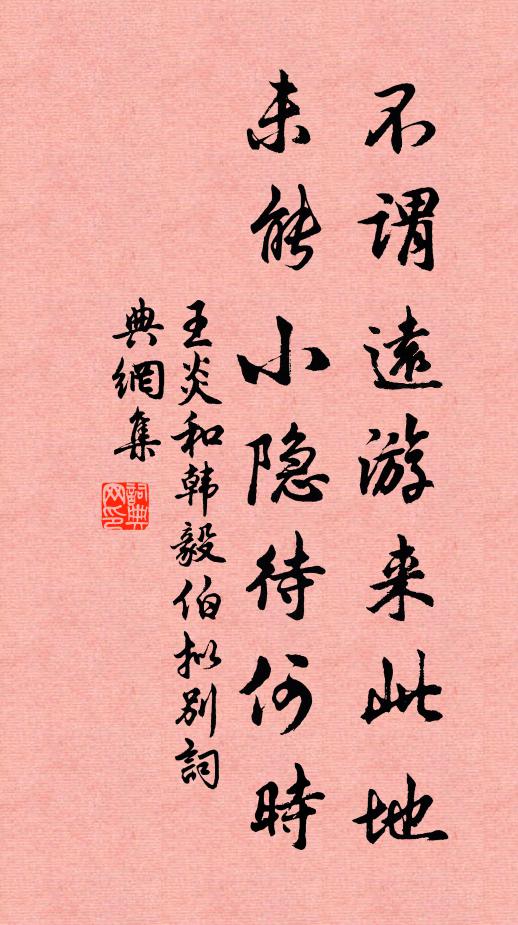 不谓遠游来此地
未能小隐待何時
王炎和韩毅伯拟别詞
典網集
詞典网印